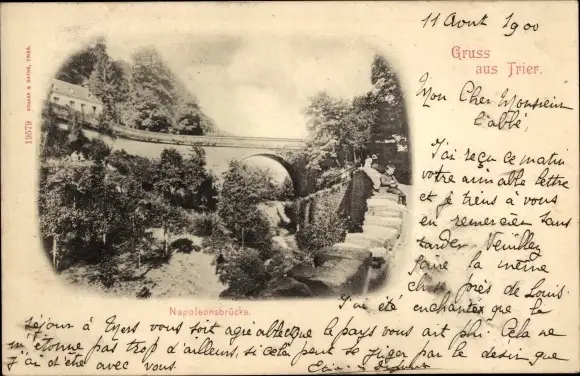 11 Aout 1900
Gruss
aus Trier.
Mon Cher Monsieur
l'abbé,
J'ai reçu ce matin
votre aimable lettre
et je tiens à vous
en remercier sans
tarder. Veuillez
faire la même
près de Louis.
J'ai été enchantée que le
séjour à vous soit agréable que le pays vous ait plu. Cela ne
m'étonne pas trop d'ailleurs, si cela peut se juger par le désir que
j'ai d'être avec vous.
Napoleonsbrücke.
19579